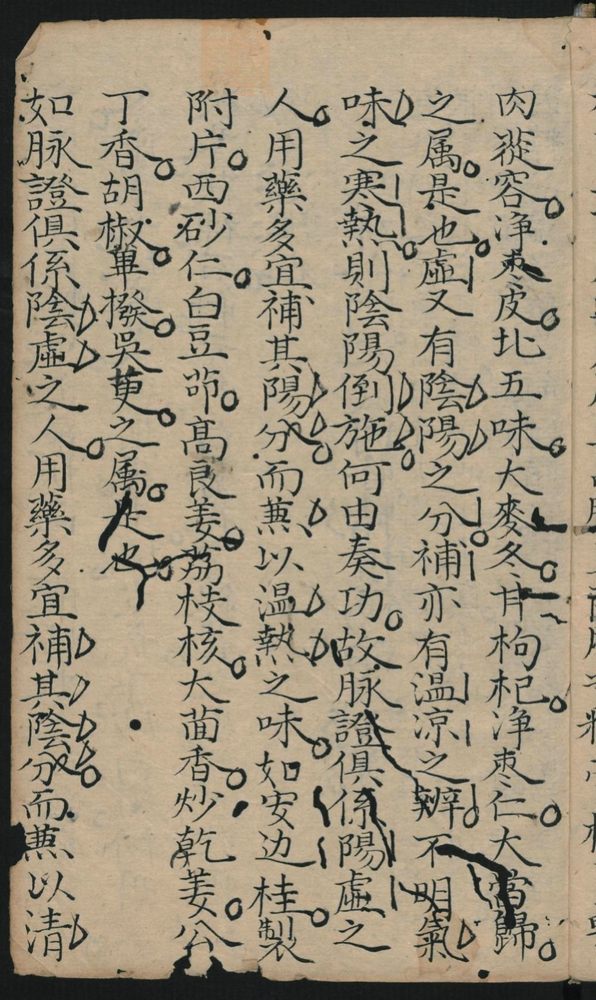 肉蓯容净枣皮北五味大麥冬甘枸杞净枣仁大當歸
之属是也虛又有陰陽之分補亦有温凉之辨不明氣
味之寒熱則陰陽倒施何由奏功故脉證俱係陽虛之
人用藥多宜補其陽分而蒹以温熱之味如安边桂製
附片西砂仁白豆茆高良姜荔枝核大茴香炒乾姜公
丁香胡椒蓽撥吳萸之属是也
如脉證俱係陰虛之人用藥多宜補其陰分而蒹以清